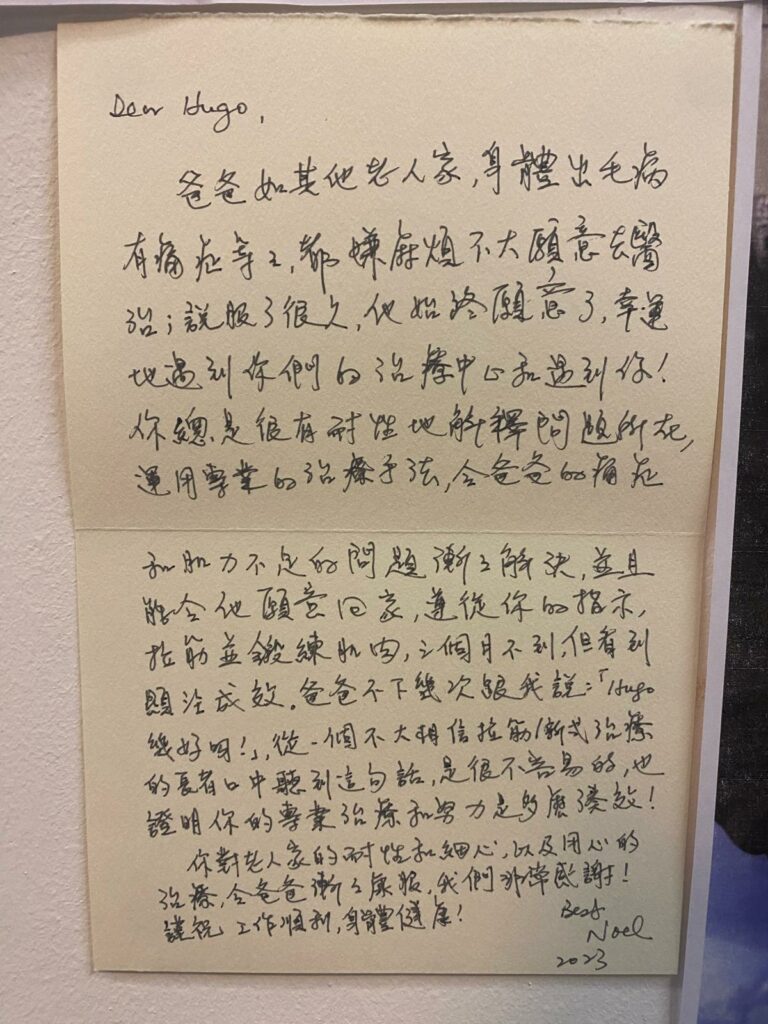 Dear Hugo,
爸爸如其他老人家，身體出毛病
有痛症等等，都嫌麻煩不大願意去醫
治；說服了很久，他始終願意了，幸運
地遇到你們的治療中心和遇到你！
你總是很有耐性地解釋問題所在，
運用專業的治療手法，令爸爸的痛症
和肌力不足的問題漸漸解決，並且
能令他願意回家，遵從你的指示，
拉筋並鍛練肌肉，三個月不到，但看到
顯注成效。爸爸不下幾次跟我說：「Hugo
幾好呀！」，從一個不大相信拉筋/新式治療
的長者口中聽到這句話，是很不容易的，也
證明你的專業治療和努力是多麼湊效！
你對老人家的耐性和細心，以及用心的
治療，令爸爸漸漸康服，我們非常感謝！
謹祝 工作順利，身體健康！
Best
Noel
2023